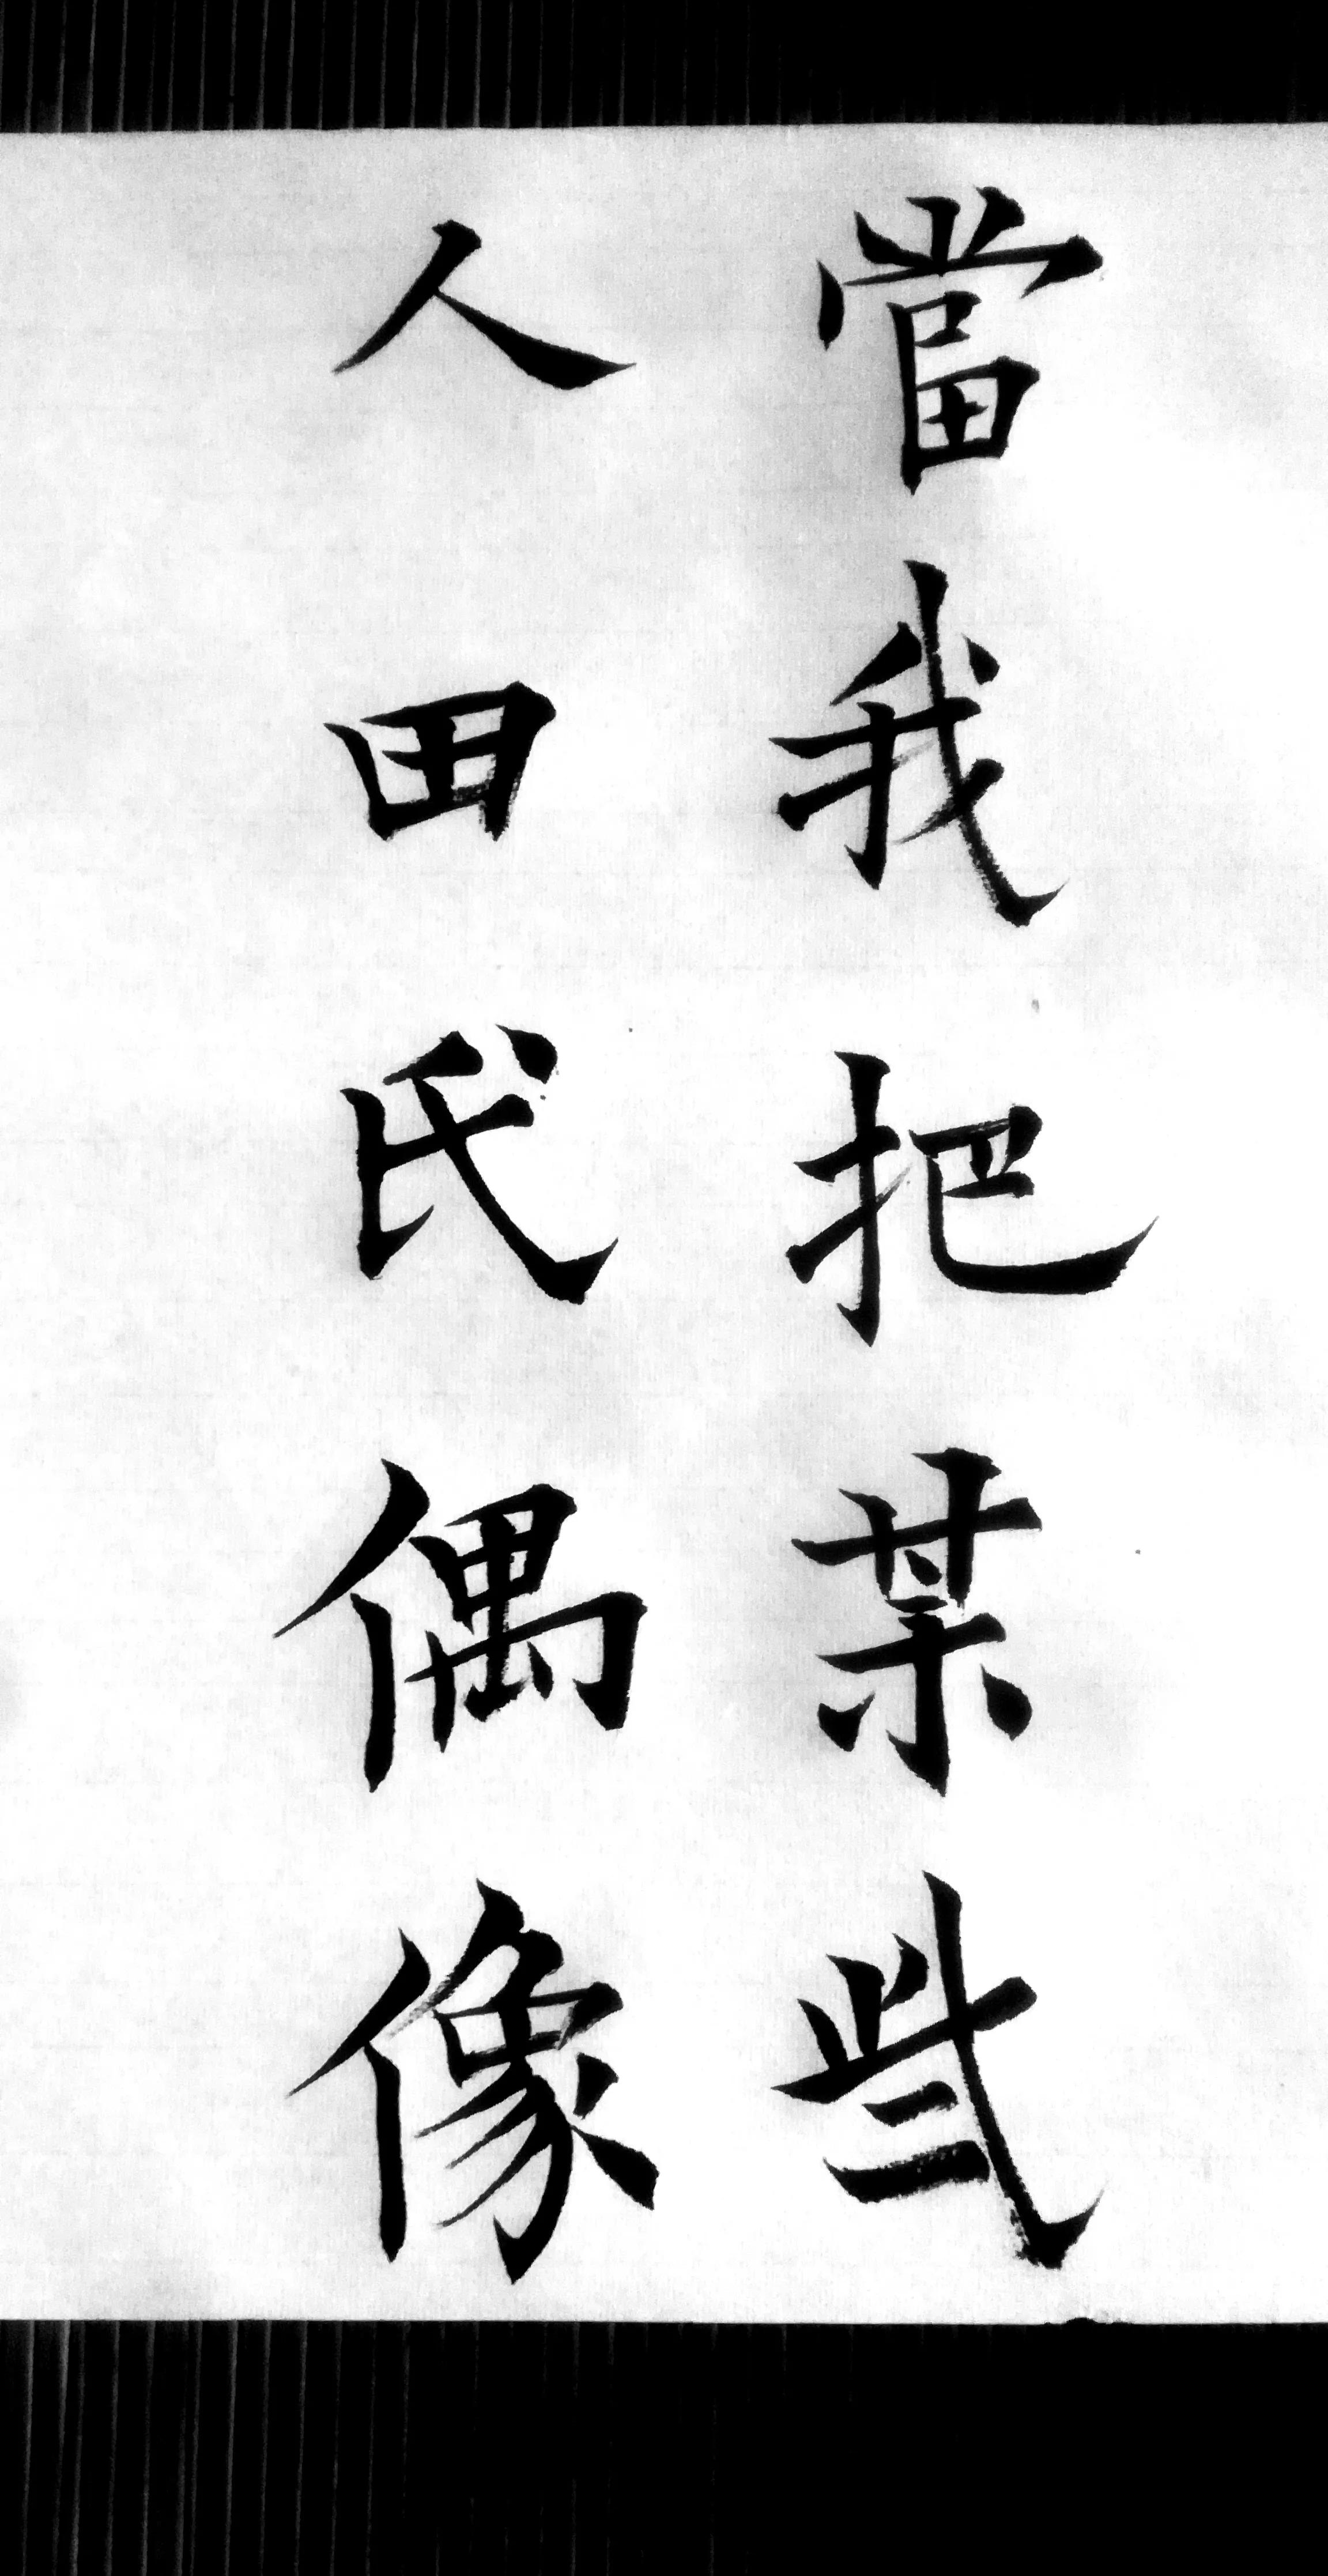 當我把某些
人田氏偶像